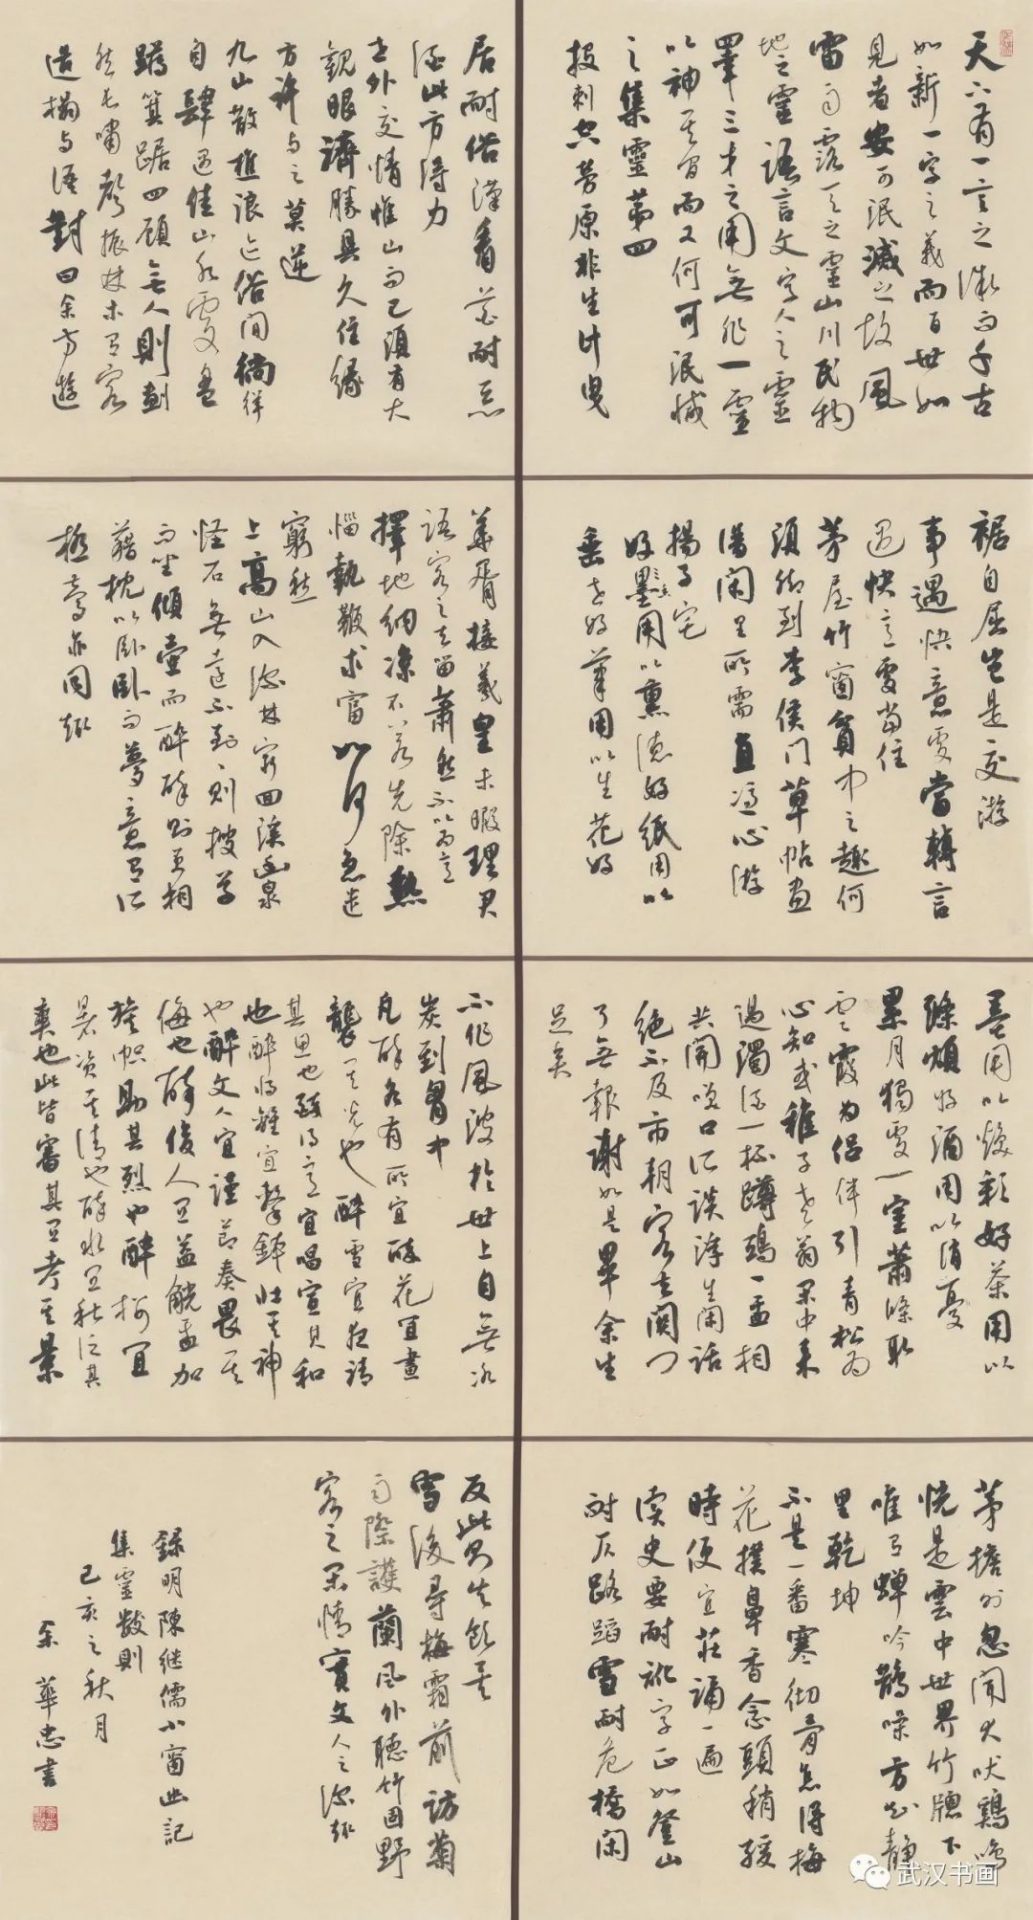 天下有一言之微而千古
如新一字之義而百世如
見者安可泯滅之故風
雷雨露天之靈山川民物
地之靈語言文字人之靈
睪三才之用無非一靈
以神其間而又何可泯滅
之集靈第四
投刺空勞原非生計曳
裾自屈豈是交游
事遇快意處當轉言
遇快意處當住
茅屋竹窗貧中之趣何
須腳到李侯門草帖畫
譜閑里所需直憑心游
揚子宅
好墨用以熏德好紙用以
垂世好筆用以生花好
墨用以煥彩好茶用以
滌煩好酒用以消憂
累月獨處一室蕭條取
雲霞為侶伴引青松為
心知或稚子老翁閑中來
過濁酒一杯蹲鴟一盂相
共開笑口所談浮生閑話
絕不及市朝客去關門
了無報謝如是畢余生
足矣
茅檐外忽聞犬吠雞鳴
恍是雲中世界竹牕下
唯有蟬吟鵲噪方知靜
里乾坤
不是一番寒徹骨怎得梅
花撲鼻香念頭稍緩
時便宜莊誦一遍
讀史要耐訛字正如登山
耐仄路蹈雪耐危橋閑
居耐俗漢看花耐惡
酒此方得力
世外交情惟山而已須有大
觀眼濟勝具久住緣
方許與之莫逆
九山散樵浪迹俗間徜徉
自肆遇佳山水處盤
礴箕踞四顧無人則劃
然長嘯聲振林木有客
造榻與語對曰余方遊
華胥接羲皇未暇理君
語客之去留蕭然不以為意
擇地納凉不若先除熱
惱執鞭求富如何急遣
窮愁
上高山入深林窮回溪幽泉
怪石無遠不到到則披草
而坐傾壺而醉醉則更相
藉枕以臥臥而夢意有所
極夢亦同趣
不作風波於世上自無冰
炭到胸中
凡醉各有所宜醉花宜晝
襲其光也醉雪宜夜清
其思也醉得意宜唱宣其和
也醉將離宜擊缽壯其神
也醉文人宜謹節奏畏其
侮也醉俊人宜益觥盂加
旗幟助其烈也醉樓宜
暑資其清也醉水宜秋泛其
爽也此皆審其宜考其景
反此則失飲矣
雪後尋梅霜前訪菊
雨際護蘭風外聽竹固野
客之閑情實文人之深趣
錄明陳繼儒小窗幽記
集靈數則
己亥之秋月
余華忠書
武汉书画